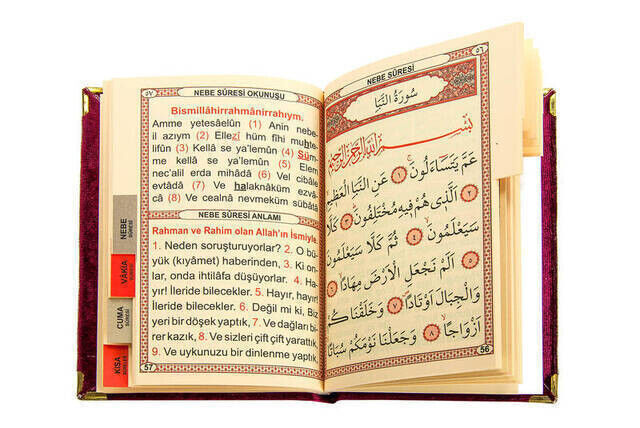 ٥٦
NEBE SÛRESİ
سُورَةُ النَّبَأِ
بِسْمِ اللّٰهِ الرَّحْمٰنِ الرَّحِيمِ
عَمَّ يَتَسَاءَلُونَ ﴿١﴾ عَنِ النَّبَاِ الْعَظِيمِ
﴿٢﴾ اَلَّذِى هُمْ فِيهِ مُخْتَلِفُونَ ﴿٣﴾ كَلَّا
سَيَعْلَمُونَ ﴿٤﴾ ثُمَّ كَلَّا سَيَعْلَمُونَ
﴿٥﴾ اَلَمْ نَجْعَلِ الْاَرْضَ مِهَادًا ﴿٦﴾
وَالْجِبَالَ اَوْتَادًا ﴿٧﴾ وَخَلَقْنَاكُمْ
اَزْوَاجًا ﴿٨﴾ وَجَعَلْنَا نَوْمَكُمْ سُبَاتًا
56
٥٧
NEBE SÛRESİ OKUNUŞU
Bismillâhirrahmânirrahıym.
Amme yetesâelûn (1) Anin nebe-
il azıym (2) Ellezî hüm fîhi muhte-
lifûn (3) Kellâ se ya'lemûn (4) Süm-
me kellâ se ya'lemûn (5) Elem
nec'alil erda mihâdâ (6) Vel cibâle
evtâdâ (7) Ve halaknâküm ezvâ-
câ (8) Ve cealnâ nevmeküm sübâtâ
NEBE SÛRESİ ANLAMI
Rahman ve Rahim olan Allah'ın İsmiyle.
1. Neden soruşturuyorlar? 2. O bü-
yük (kıyâmet) haberinden, 3. Ki on-
lar, onda ihtilâfa düşüyorlar. 4. Ha-
yır! İleride bilecekler. 5. Hayır, hayır!
İleride bilecekler. 6. Değil mi ki, Biz
yeri bir döşek yaptık, 7. Ve dağları bi-
rer kazık, 8. Ve sizleri çift çift yarattık,
9. Ve uykunuzu bir dinlenme yaptık.
57
NEBE
SÛRESİ
VÂKIA
CUMA
SÛRESİ
KISA